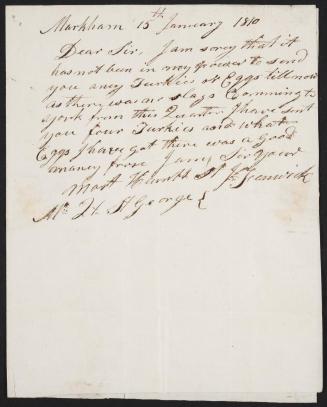 Markham 15th January 1810
Dear Sir, I am sorey that it
has not been in my power to send
you aney Turkies or Eggs till now
as there was no slays Comming to
york from this Quarter I have sent
you four Turkies and what
Eggs I have got there was a good
maney froze I am Sir your
most Humble St
Mr. St George {